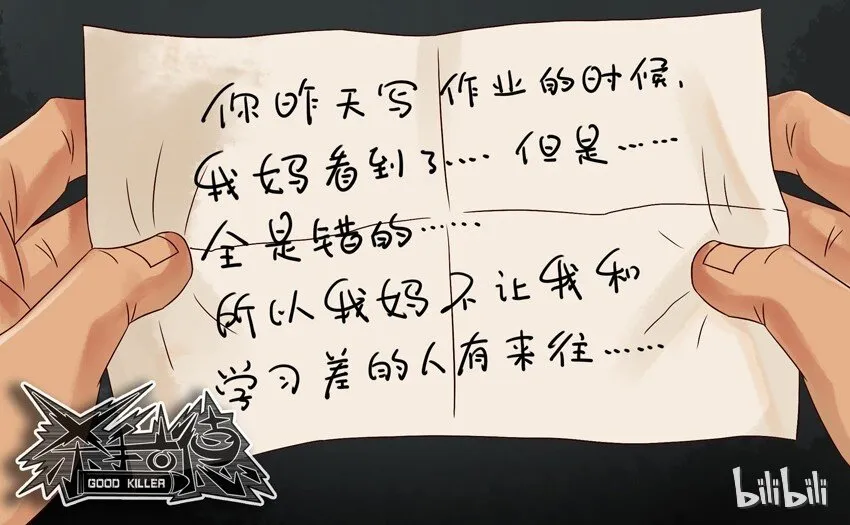 你昨天写作业的时候,
我妈看到了.... 但是......
全是错的......
所以我妈不让我和
学习差的人有来往......
杀手古德
GOOD KILLER
bilibili